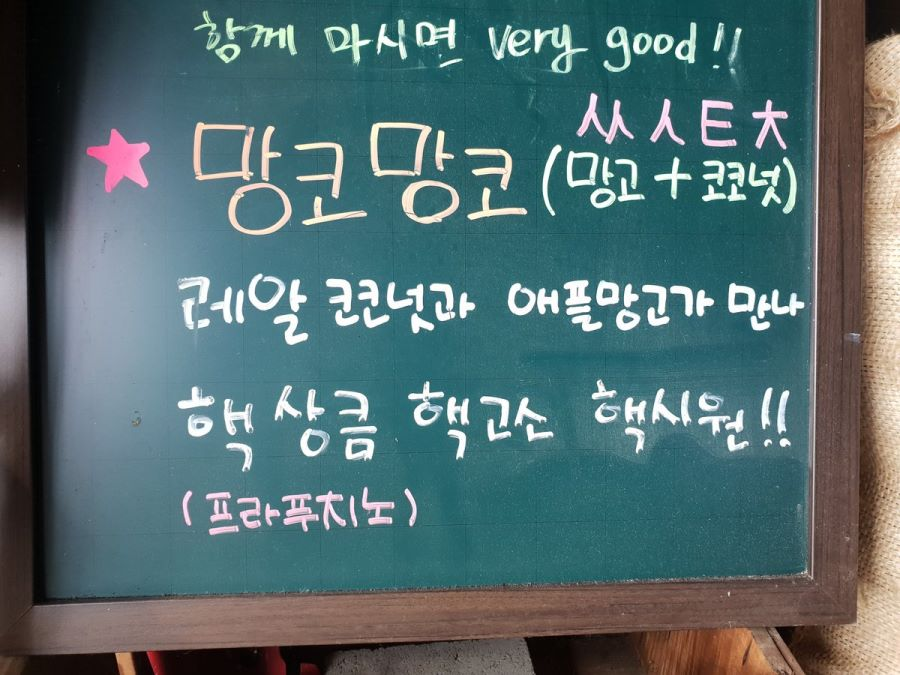 함께 마시면 very good!!
ㅆㅅㅌㅊ
★ 망코망코 (망고 + 코코넛)
레알 코코넛과 애플망고가 만나
핵상큼 핵고소 핵시원!!
(프라푸치노)